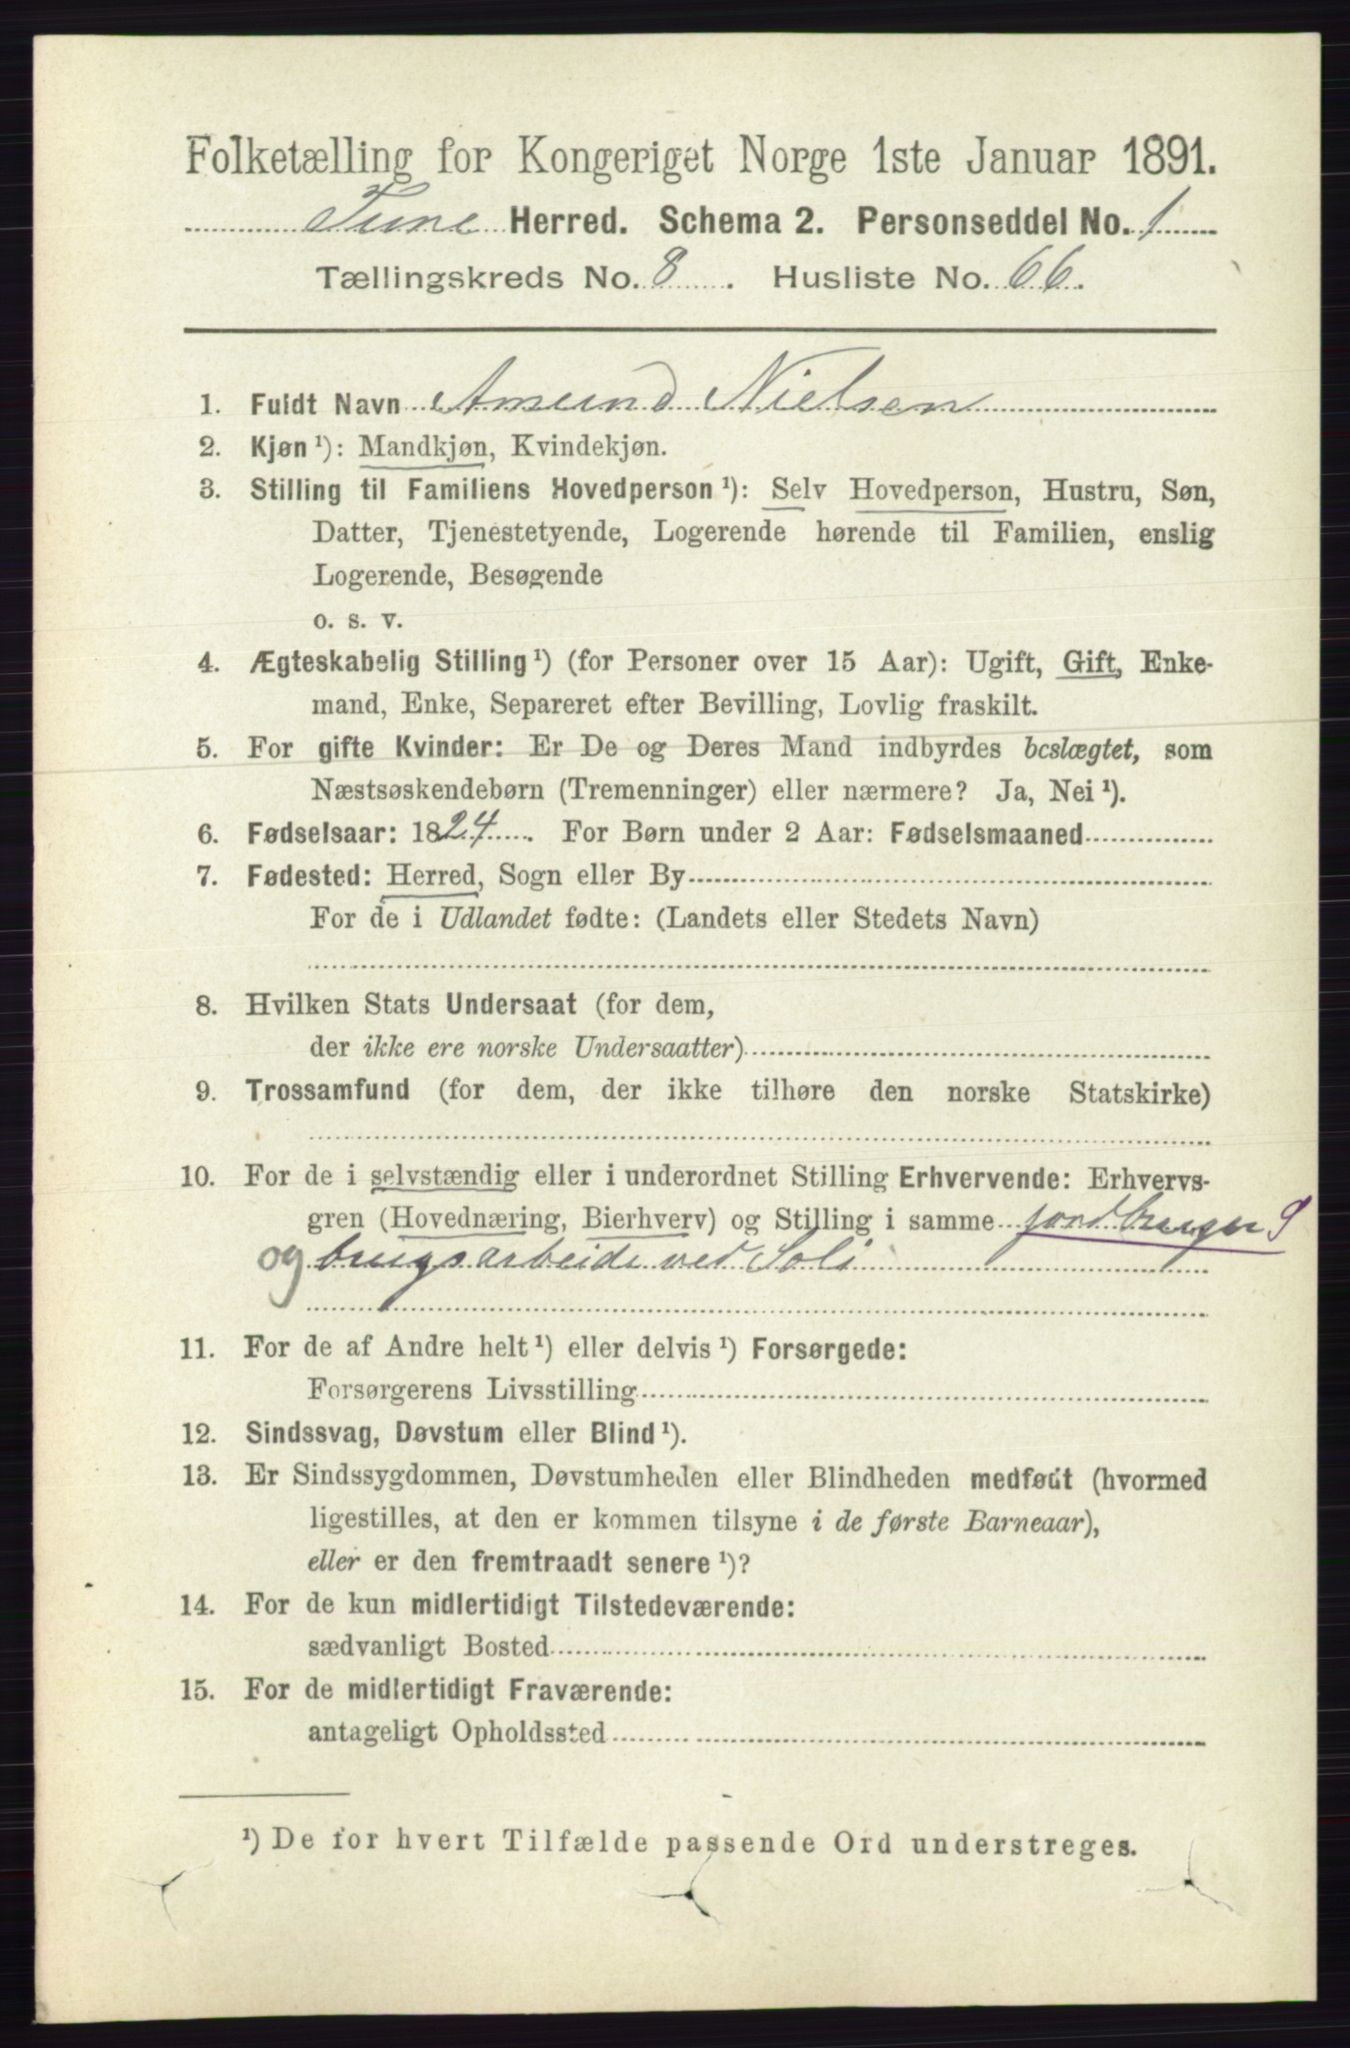 Folketælling for Kongeriget Norge 1ste Januar 1891.
Tune Herred. Schema 2. Personseddel No. 1
Tællingskreds No. 8. Husliste No. 66.
1. Fuldt Navn Amund Nielsen
2. Kjøn ¹): Mandkjøn, Kvindekjøn.
3. Stilling til Familiens Hovedperson ¹): Selv Hovedperson, Hustru, Søn,
Datter, Tjenestetyende, Logerende hørende til Familien, enslig
Logerende, Besøgende
o. s. v.
4. Ægteskabelig Stilling ¹) (for Personer over 15 Aar): Ugift, Gift, Enke-
mand, Enke, Separeret efter Bevilling, Lovlig fraskilt.
5. For gifte Kvinder: Er De og Deres Mand indbyrdes beslægtet, som
Næstsøskendebørn (Tremenninger) eller nærmere? Ja, Nei ¹).
6. Fødselsaar: 1824. For Børn under 2 Aar: Fødselsmaaned
7. Fødested: Herred, Sogn eller By
For de i Udlandet fødte: (Landets eller Stedets Navn)
8. Hvilken Stats Undersaat (for dem,
der ikke ere norske Undersaatter)
9. Trossamfund (for dem, der ikke tilhøre den norske Statskirke)
10. For de i selvstændig eller i underordnet Stilling Erhvervende: Erhvervs-
gren (Hovednæring, Bierhverv) og Stilling i samme jordbruger 9
og brugsarbeide ved Soli
11. For de af Andre helt ¹) eller delvis ¹) Forsørgede:
Forsørgerens Livsstilling
12. Sindssvag, Døvstum eller Blind ¹).
13. Er Sindssygdommen, Døvstumheden eller Blindheden medfødt (hvormed
ligestilles, at den er kommen tilsyne i de første Barneaar),
eller er den fremtraadt senere ¹)?
14. For de kun midlertidigt Tilstedeværende:
sædvanligt Bosted
15. For de midlertidigt Fraværende:
antageligt Opholdssted
¹) De for hvert Tilfælde passende Ord understreges.